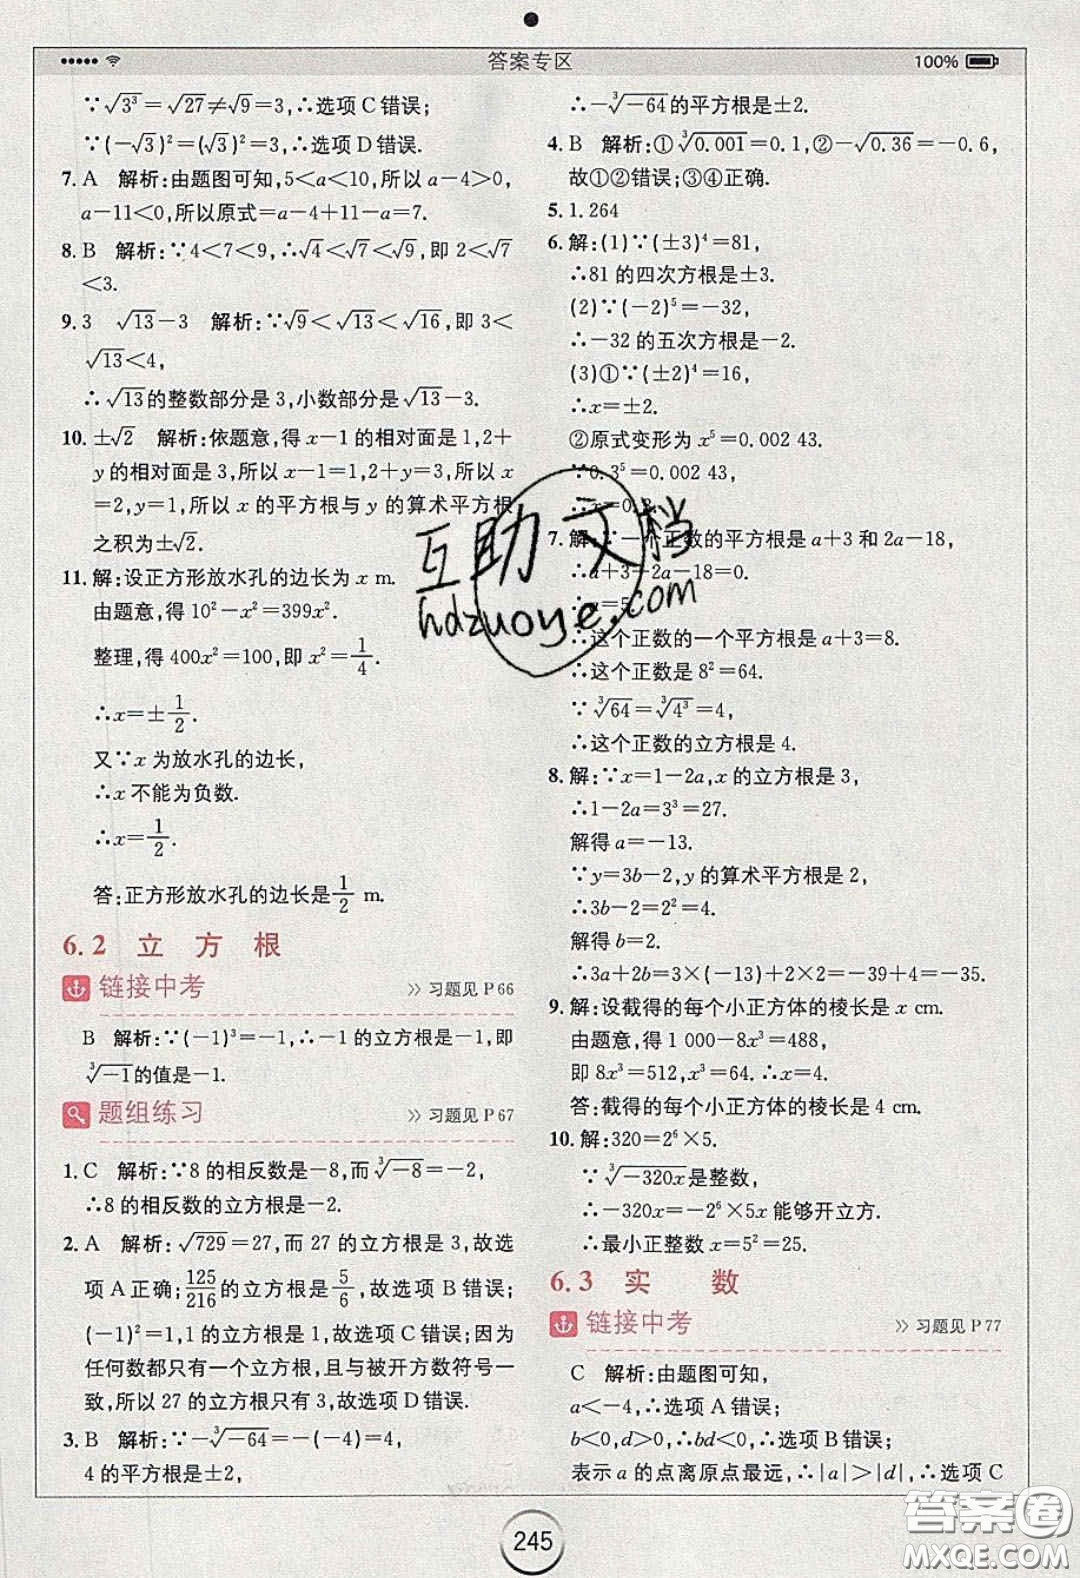 答案专区
100%
∵√3³=√27≠√9=3,∴选项C错误;
∵(-√3)²=(√3)²=3,∴选项D错误.
7. A 解析:由题图可知,5<a<10,所以a-4>0,
a-11<0,所以原式=a-4+11-a=7.
8. B 解析:∵4<7<9,∴√4<√7<√9,即2<√7
<3.
9. 3 √13-3 解析:∵√9<√13<√16,即3<
√13<4,
∴√13的整数部分是3,小数部分是√13-3.
10. ±√2 解析:依题意,得x-1的相对面是1,2+
y的相对面是3,所以x-1=1,2+y=3,所以x
=2,y=1,所以x的平方根与y的算术平方根
之积为±√2.
11. 解:设正方形放水孔的边长为x m.
由题意,得10²-x²=399x².
整理,得400x²=100,即x²=1/4.
∴x=±1/2.
又∵x为放水孔的边长,
∴x不能为负数.
∴x=1/2.
答:正方形放水孔的边长是1/2 m.
6.2 立 方 根
链接中考 >> 习题见P66
B 解析:∵(-1)³=-1,∴-1的立方根是-1,即
∛-1的值是-1.
题组练习 >> 习题见P67
1. C 解析:∵8的相反数是-8,而∛-8=-2,
∴8的相反数的立方根是-2.
2. A 解析:√729=27,而27的立方根是3,故选
项A正确;125/216的立方根是5/6,故选项B错误;
(-1)²=1,1的立方根是1,故选项C错误;因为
任何数都只有一个立方根,且与被开方数符号一
致,所以27的立方根只有3,故选项D错误.
3. B 解析:∵-∛-64=-(-4)=4,
4的平方根是±2,
∴-∛-64的平方根是±2.
4. B 解析:①∛0.001=0.1,②-√0.36=-0.6,
故①②错误;③④正确.
5. 1.264
6. 解:(1)∵(±3)⁴=81,
∴81的四次方根是±3.
(2)∵(-2)⁵=-32,
∴-32的五次方根是-2.
(3)①∵(±2)⁴=16,
∴x=±2.
②原式变形为x⁵=0.002 43.
∵0.3⁵=0.002 43,
∴x=0.3.
7. 解:∵一个正数的平方根是a+3和2a-18,
∴a+3+2a-18=0.
∴a=5.
∴这个正数的一个平方根是a+3=8.
∴这个正数是8²=64.
∵∛64=∛4³=4,
∴这个正数的立方根是4.
8. 解:∵x=1-2a,x的立方根是3,
∴1-2a=3³=27.
解得a=-13.
∵y=3b-2,y的算术平方根是2,
∴3b-2=2²=4.
解得b=2.
∴3a+2b=3×(-13)+2×2=-39+4=-35.
9. 解:设截得的每个小正方体的棱长是x cm.
由题意,得1 000-8x³=488,
即8x³=512,x³=64.∴x=4.
答:截得的每个小正方体的棱长是4 cm.
10. 解:320=2⁶×5.
∵∛-320x是整数,
∴-320x=-2⁶×5x能够开立方.
∴最小正整数x=5²=25.
6.3 实 数
链接中考 >> 习题见P77
C 解析:由题图可知,
a<-4,∴选项A错误;
b<0,d>0,∴bd<0,∴选项B错误;
表示a的点离原点最远,∴|a|>|d|,∴选项C
245
互助文档
hdzuoye.com
答案圈
MXQE.COM